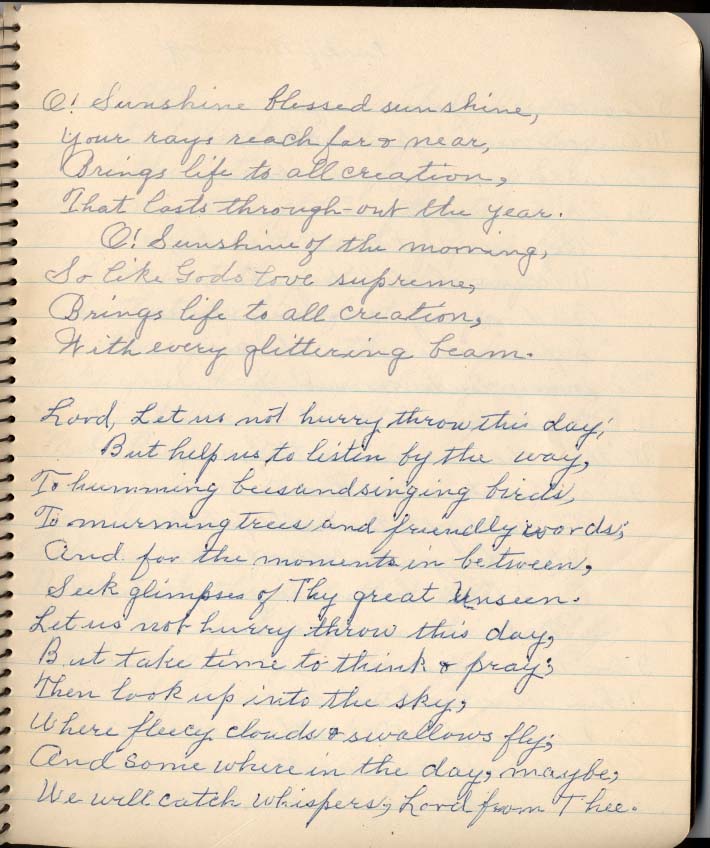 O! Sunshine blessed sunshine,
Your rays reach far & near,
Brings life to all creation,
That lasts through-out the year.
O! Sunshine of the morning,
So like Gods love supreme,
Brings life to all creation,
With every glittering beam.
Lord, Let us not hurry throw this day,
But help us to listin by the way,
To humming bees and singing birds,
To mursming trees and friendly words;
And for the moments in between,
Seek glimpses of Thy great Unseen.
Let us not hurry throw this day,
But take time to think & pray;
Then look up into the sky,
Where fleecy clouds & swallows fly;
And some where in the day, maybe,
We will catch whispers, Lord from Thee.